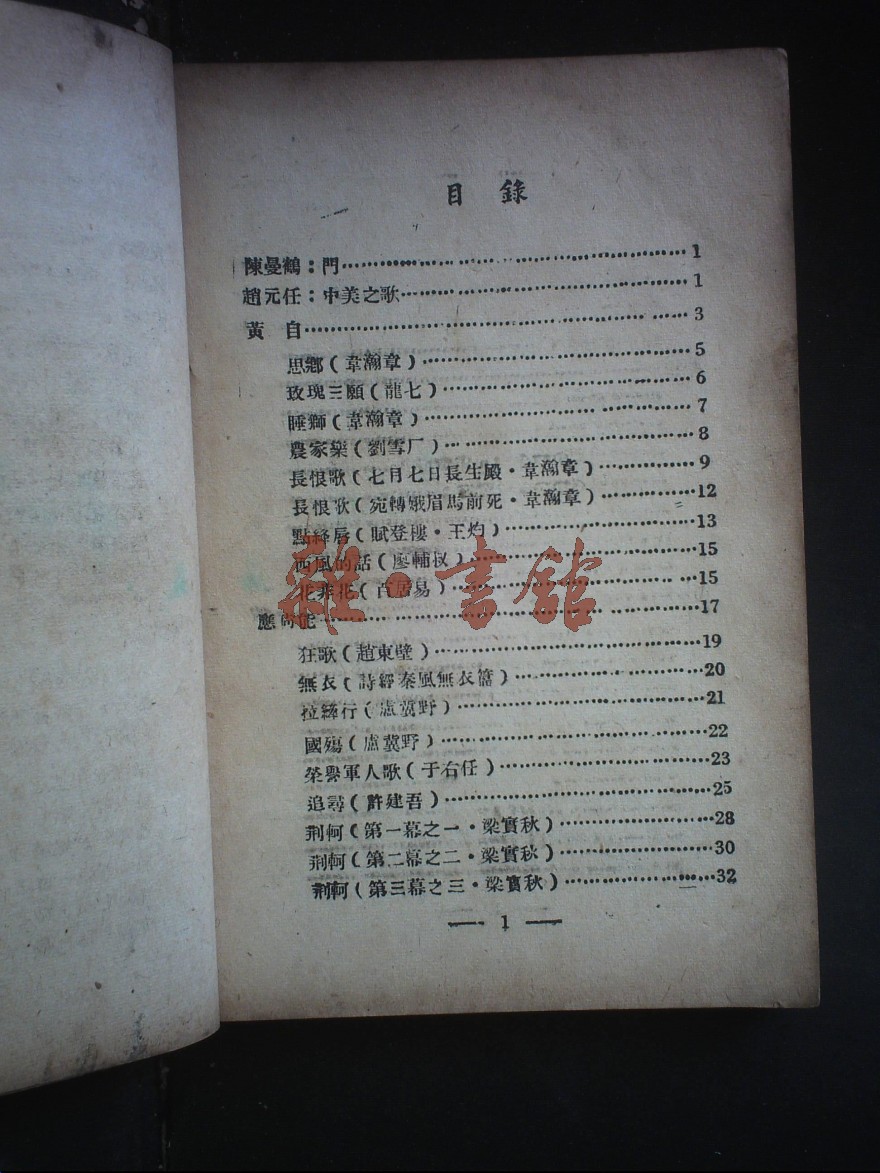 目錄
陳曼鶴：門………1
趙元任：中美之歌………1
黃 自………3
思鄉（韋瀚章）………5
玫瑰三願（龍七）………6
睡獅（韋瀚章）………7
農家樂（劉雪厂）………8
長恨歌（七月七日長生殿·韋瀚章）………9
長恨歌（宛轉娥眉馬前死·韋瀚章）………12
點絳唇（賦登樓·王灼）………13
西風的話（廖輔叔）………15
花非花（白居易）………15
應尚能………17
狂歌（趙東壁）………19
無衣（詩經秦風無衣篇）………20
拉縴行（盧冀野）………21
國殤（盧冀野）………22
榮譽軍人歌（于右任）………23
追尋（許建吾）………25
荆軻（第一幕之一·梁實秋）………28
荆軻（第二幕之二·梁實秋）………30
荆軻（第三幕之三·梁實秋）………32
— 1 —
雜·書館